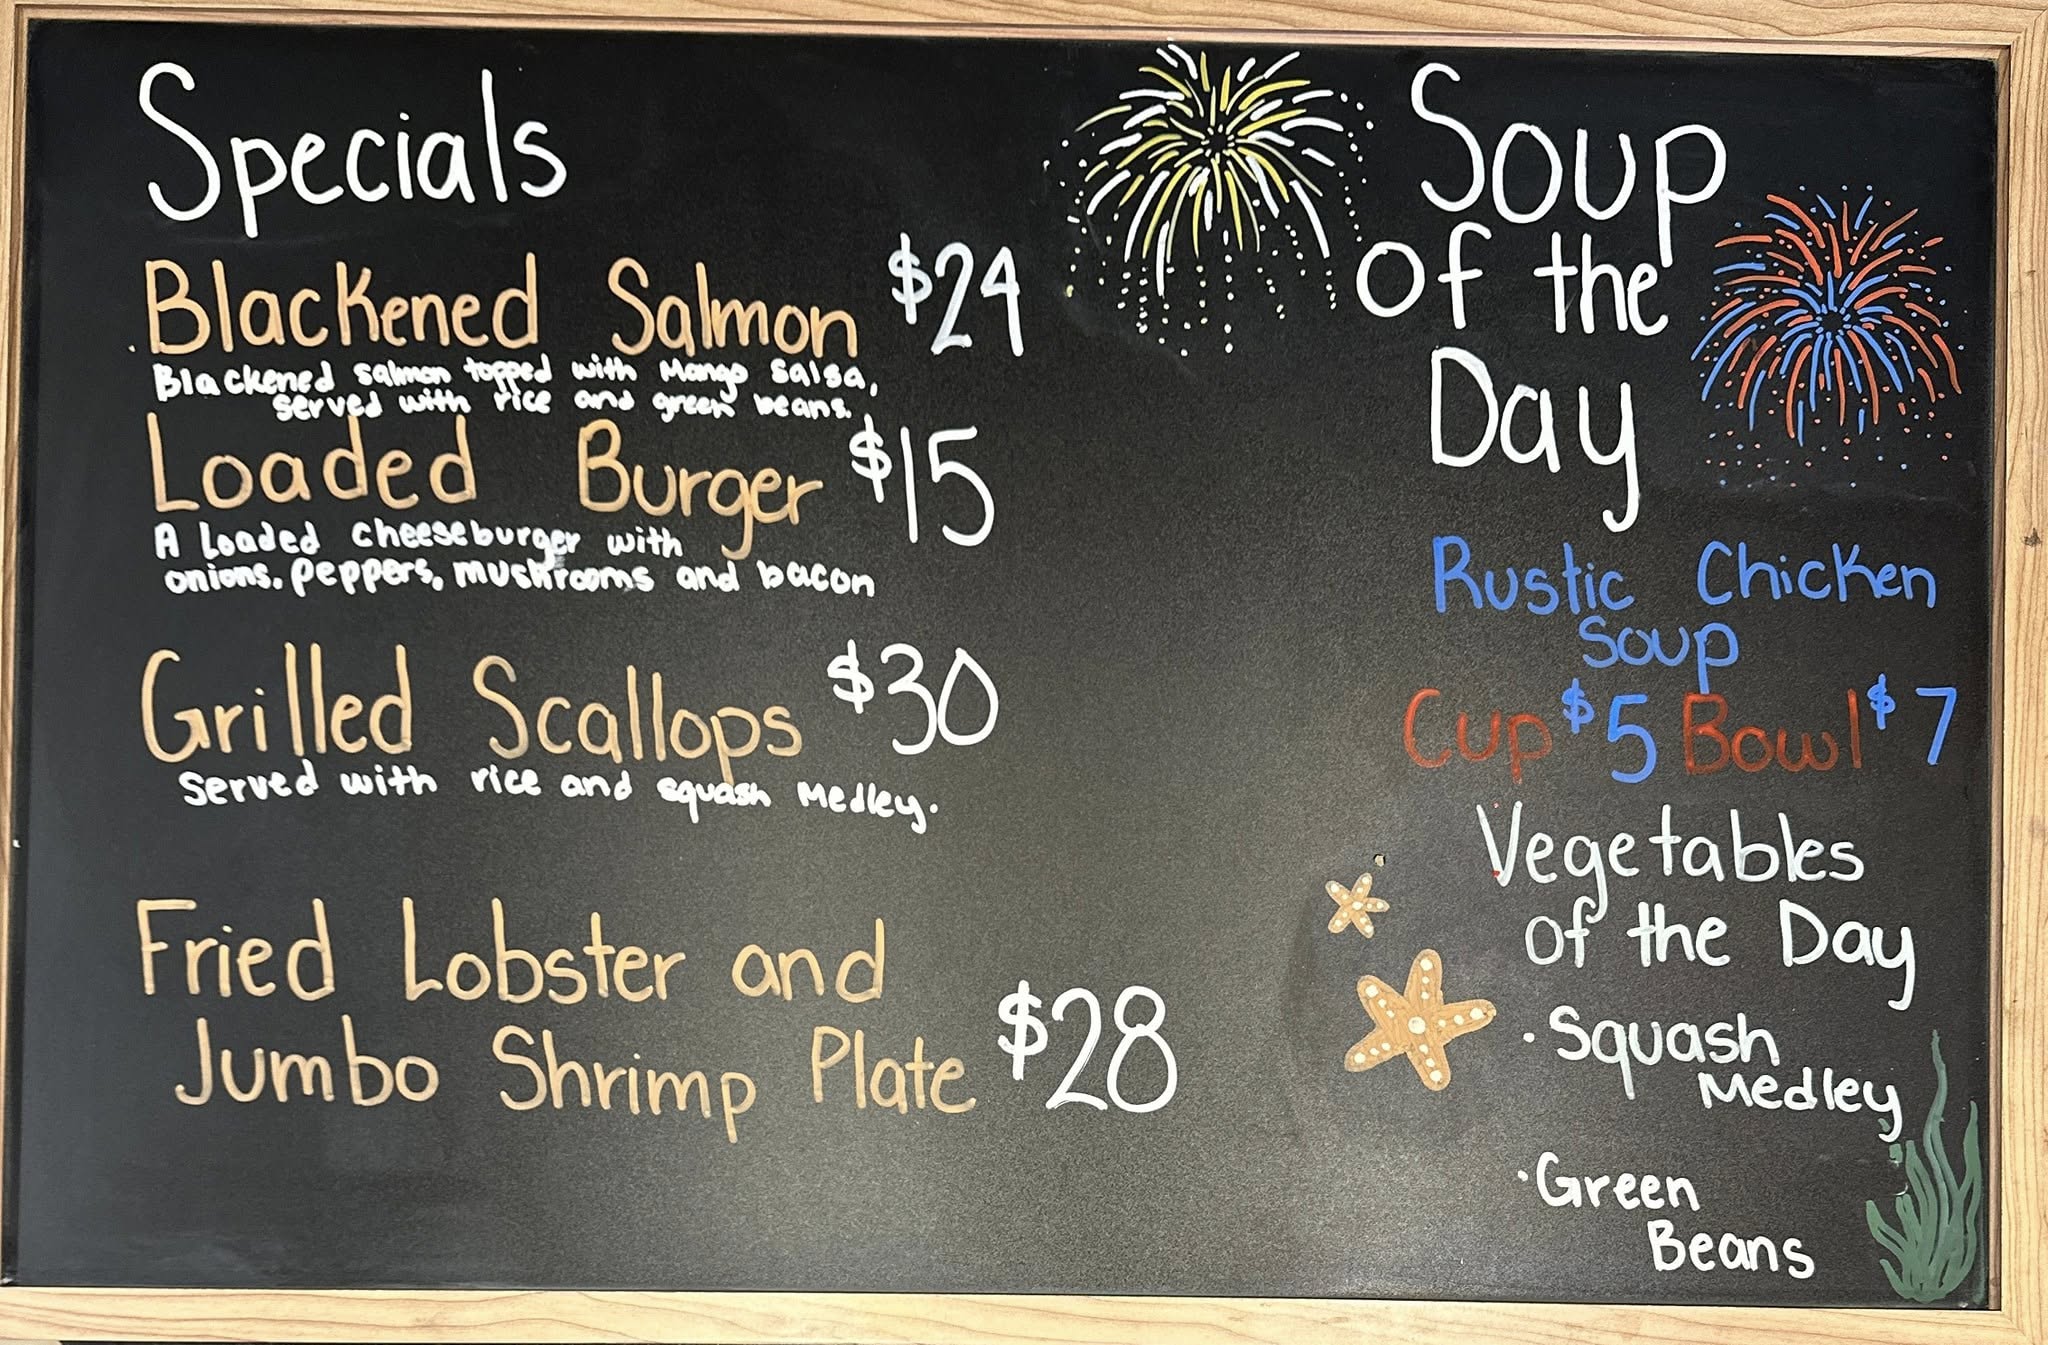 Specials
Blackened Salmon $24
Blackened salmon topped with Mango Salsa,
served with rice and green beans.
Loaded Burger $15
A Loaded cheeseburger with
onions, peppers, mushrooms and bacon
Grilled Scallops $30
Served with rice and squash Medley.
Fried Lobster and
Jumbo Shrimp Plate $28
Soup
of the
Day
Rustic Chicken
Soup
Cup $5 Bowl $7
Vegetables
of the Day
• Squash
Medley
• Green
Beans